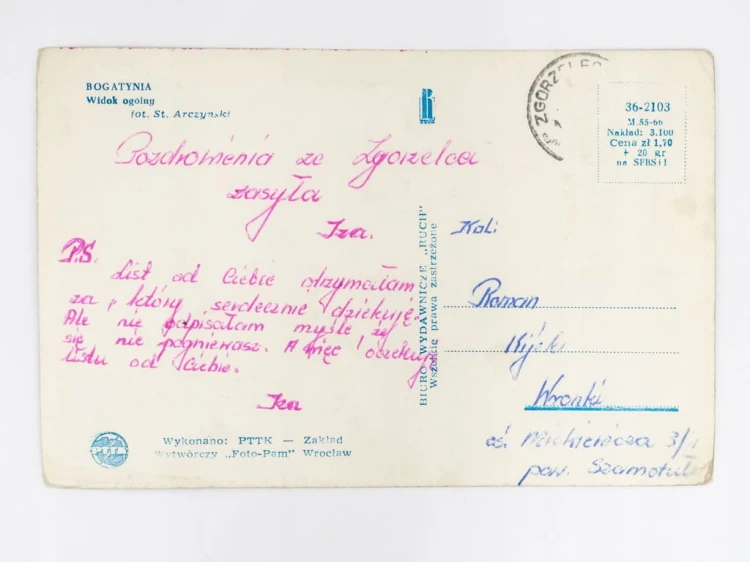 BOGATYNIA
Widok ogólny
fot. St. Arczyński
Pozdrowienia ze Zgorzelca
zasyła
Iza.
P.S.
List od Ciebie otrzymałam
za, który serdecznie dziękuję.
Ale nie odpisałam myślę że
się nie pogniewasz. A więc oczekuję
listu od Ciebie.
Iza
Wykonano: PTTK — Zakład
Wytwórczy „Foto-Pam" Wrocław
PTTK
BIURO WYDAWNICZE „RUCH"
Wszelkie prawa zastrzeżone
RUCH
ZGORZELEC
36-2103
M.55-66
Nakład: 3.100
Cena zł 1,70
+ 20 gr
na SFBSiI
Kol:
Roman
Wronki
oś. Mickiewicza 3/
pow. Szamotuły